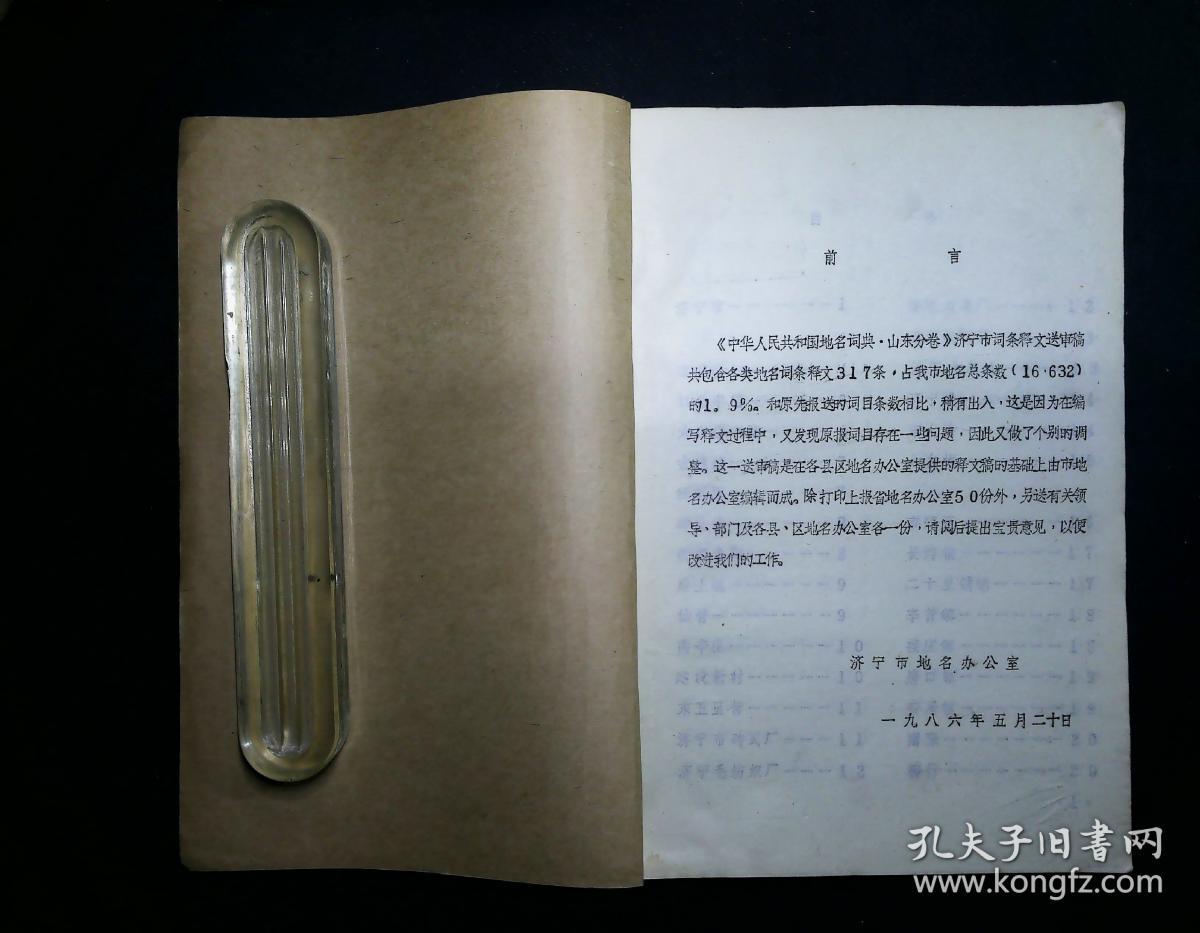 前 言
《中华人民共和国地名词典·山东分卷》济宁市词条释文送审稿
共包含各类地名词条释文317条,占我市地名总条数(16·632)
的1。9%。和原先报送的词目条数相比,稍有出入,这是因为在编
写释文过程中,又发现原报词目存在一些问题,因此又做了个别的调
整。这一送审稿是在各县区地名办公室提供的释文稿的基础上由市地
名办公室编辑而成。除打印上报省地名办公室50份外,另送有关领
导、部门及各县、区地名办公室各一份,请阅后提出宝贵意见,以便
改进我们的工作。
济宁市地名办公室
一九八六年五月二十日
孔夫子旧书网
www.kongfz.com